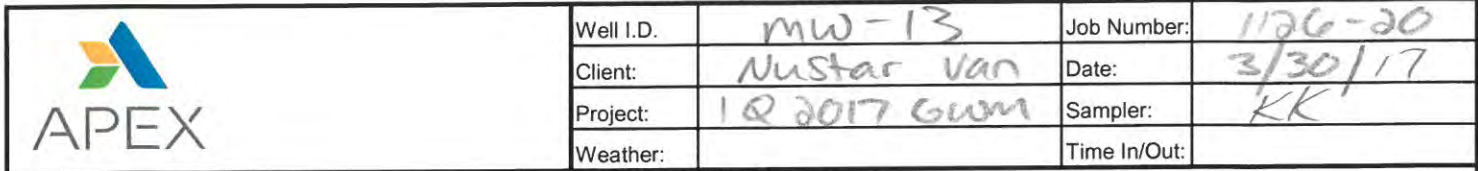 Well I.D. MW-13 Job Number: 1126-20
Client: NuStar Van Date: 3/30/17
Project: 1Q 2017 GWM Sampler: KK
Weather: Time In/Out:
APEX